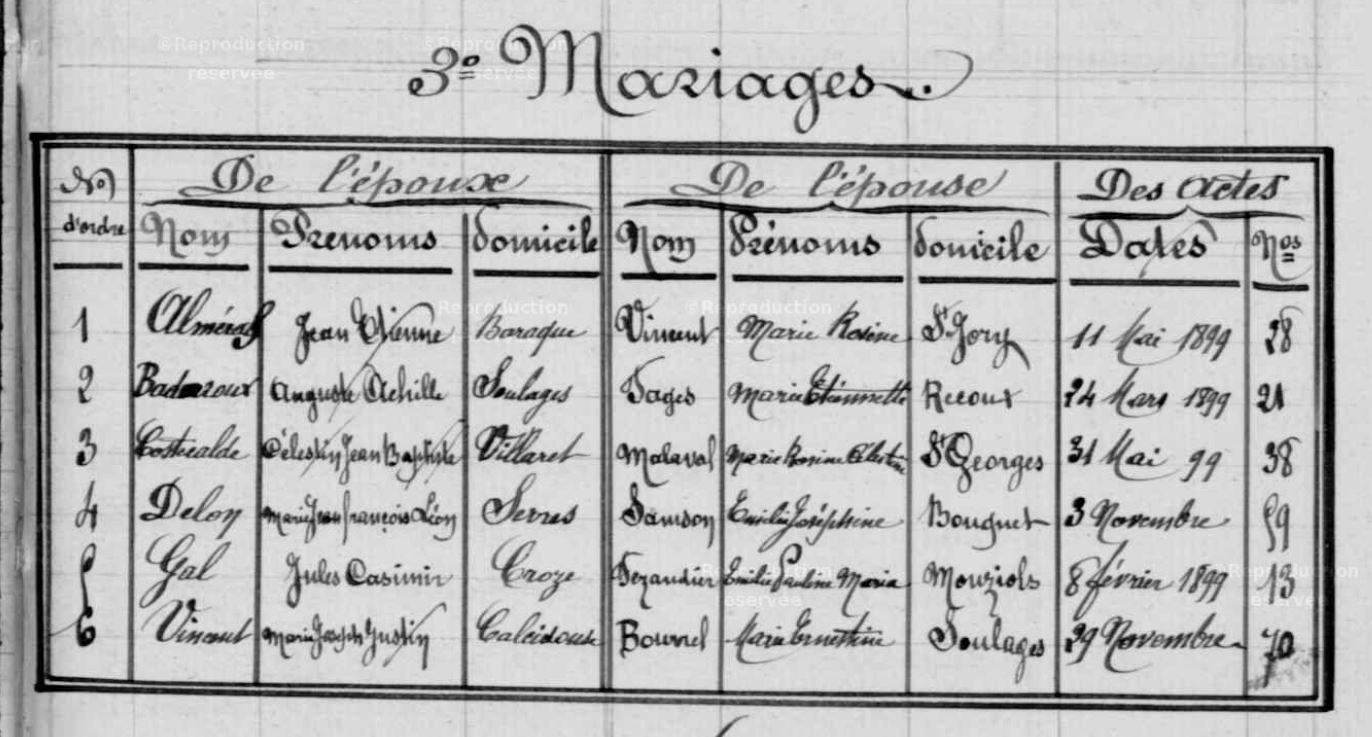 3º Mariages.
Nº d'ordre De l'épouxe De l'épouse Des Actes
Nom Prénoms domicile Nom Prénoms domicile Dates Nos
1 Alméras Jean Etienne Baraque Vincent Marie Rosine St Jory 11 Mai 1899 28
2 Badaroux Auguste Achille Soulages Pages Marie Etiennette Recoux 24 Mars 1899 21
3 Costecalde Célestin Jean Baptiste Villaret Malaval Marie Rosine Célestine St Georges 31 Mai 99 38
4 Delon Marie Jean françois Léon Serres Samson Emilie Joséphine Bouquet 3 Novembre 59
5 Gal Jules Casimir Croze Emilie Pauline Maria Mouziols 8 février 1899 13
6 Vincent Marie Joseph Justin Calcidouse Bournel Marie Ernestine Soulages 29 Novembre 70
©Reproduction reservée